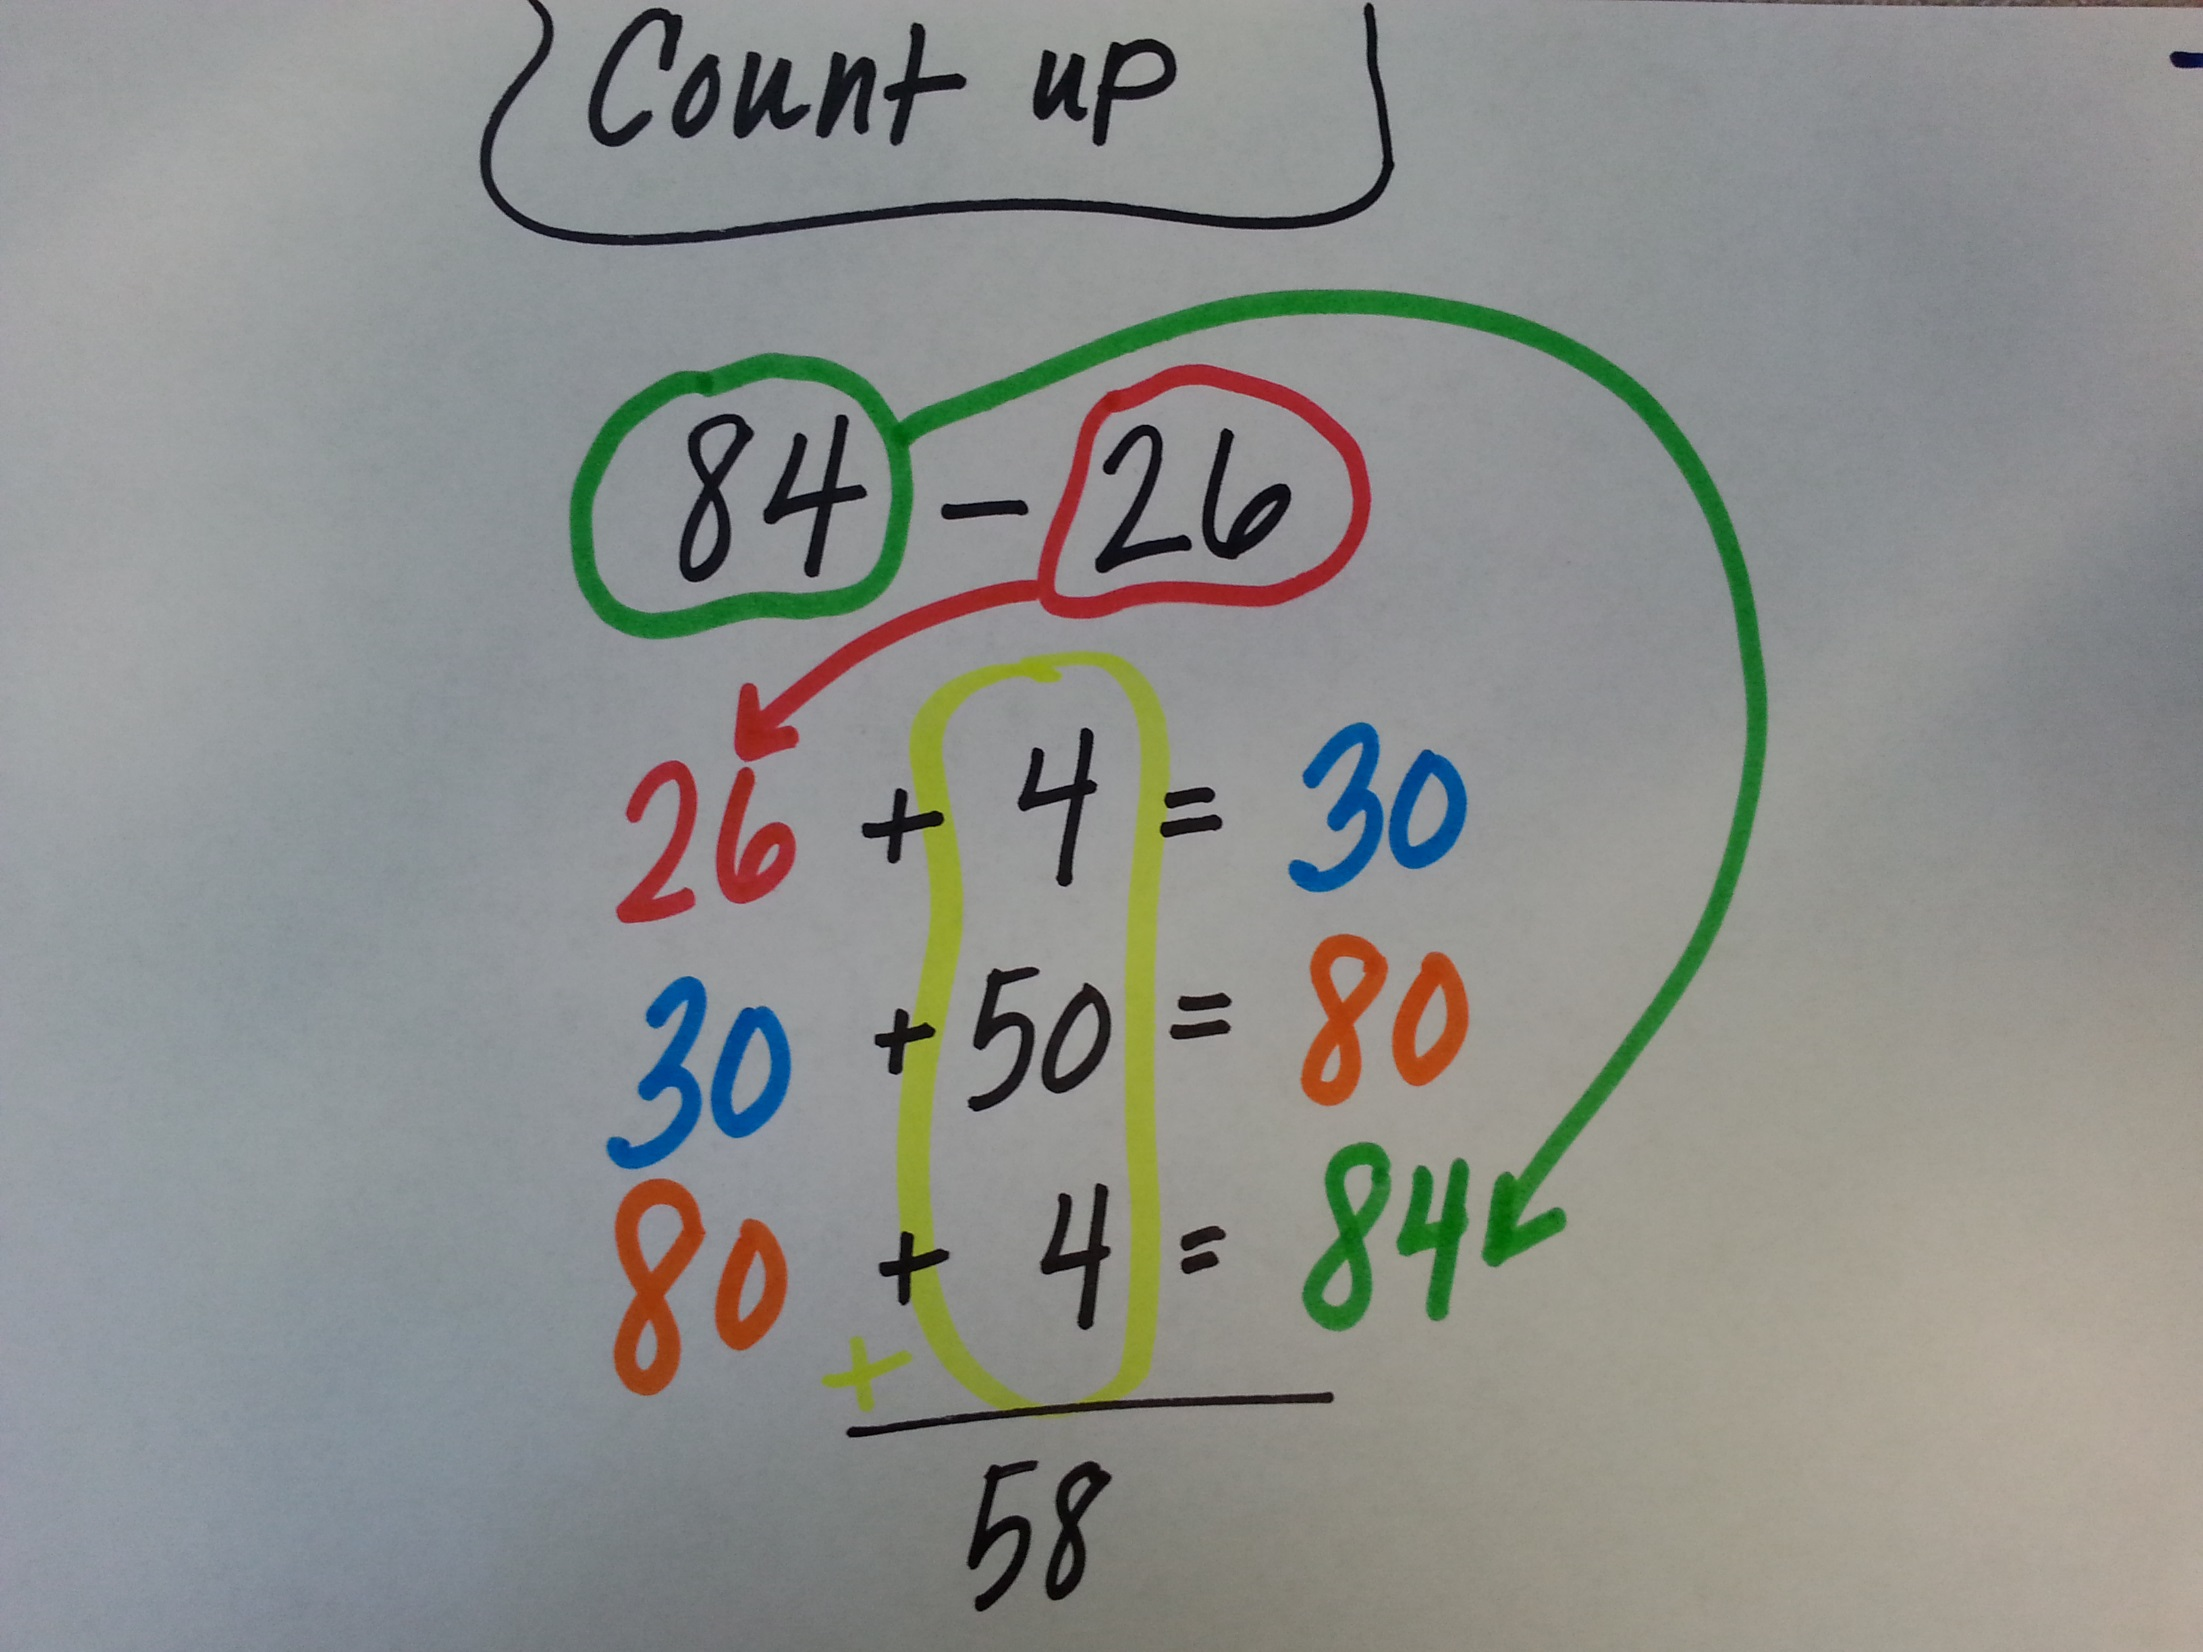 Count up
84 - 26
26 + 4 = 30
30 + 50 = 80
80 + 4 = 84
+
58